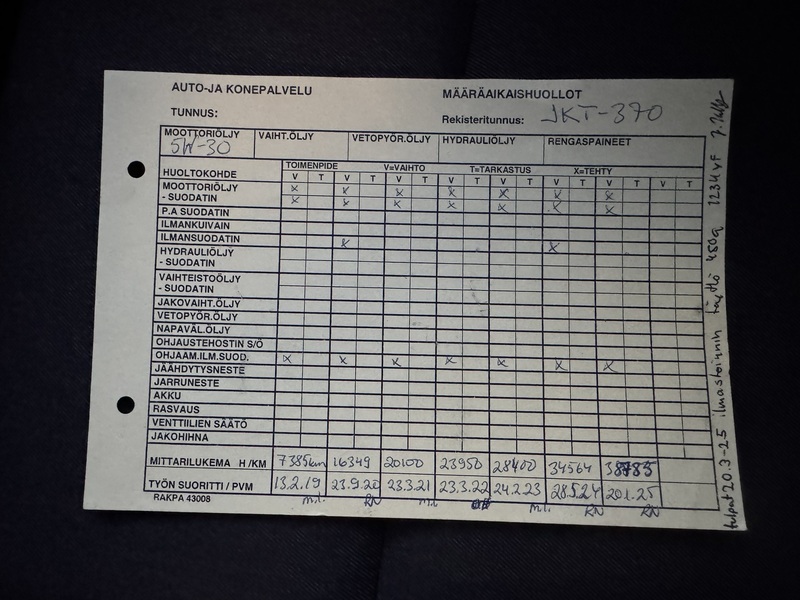 AUTO-JA KONEPALVELU
MÄÄRÄAIKAISHUOLLOT
TUNNUS:
Rekisteritunnus: JKT-370
MOOTTORIÖLJY VAIHT.ÖLJY VETOPYÖR.ÖLJY HYDRAULIÖLJY RENGASPAINEET
5W-30
HUOLTOKOHDE TOIMENPIDE V=VAIHTO T=TARKASTUS X=TEHTY
V T V T V T V T V T V T V T V T
MOOTTORIÖLJY x x x x x x x
- SUODATIN x x x x x x x
P.A SUODATIN
ILMANKUIVAIN
ILMANSUODATIN x x
HYDRAULIÖLJY
- SUODATIN
VAIHTEISTOÖLJY
- SUODATIN
JAKOVAIHT.ÖLJY
VETOPYÖR.ÖLJY
NAPAVÄL.ÖLJY
OHJAUSTEHOSTIN S/Ö
OHJAAM.ILM.SUOD. x x x x x x x
JÄÄHDYTYSNESTE
JARRUNESTE
AKKU
RASVAUS
VENTTIILIEN SÄÄTÖ
JAKOHIHNA
MITTARILUKEMA H /KM 7385km 16349 20100 23950 28400 34564
TYÖN SUORITTI / PVM 13.2.19 23.9.20 23.3.21 23.3.22 24.2.23 28.5.24 20.1.25
RAKPA 43008 m.l. RN m.l. m.l. RN RN
20.3-25 ilmastoinnin täyttö 450g 1234yF